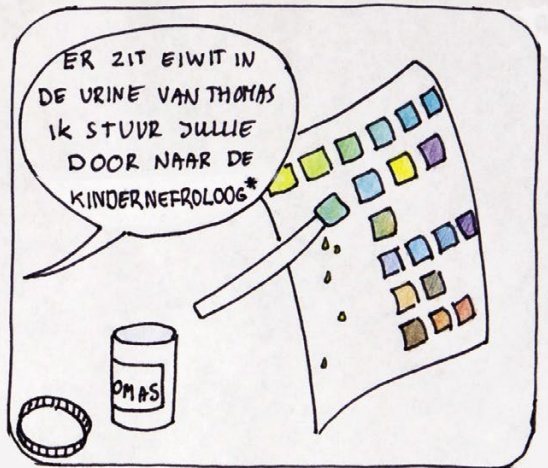 ER ZIT EIWIT IN
DE URINE VAN THOMAS
IK STUUR JULLIE
DOOR NAAR DE
KINDERNEFROLOOG*
OMAS